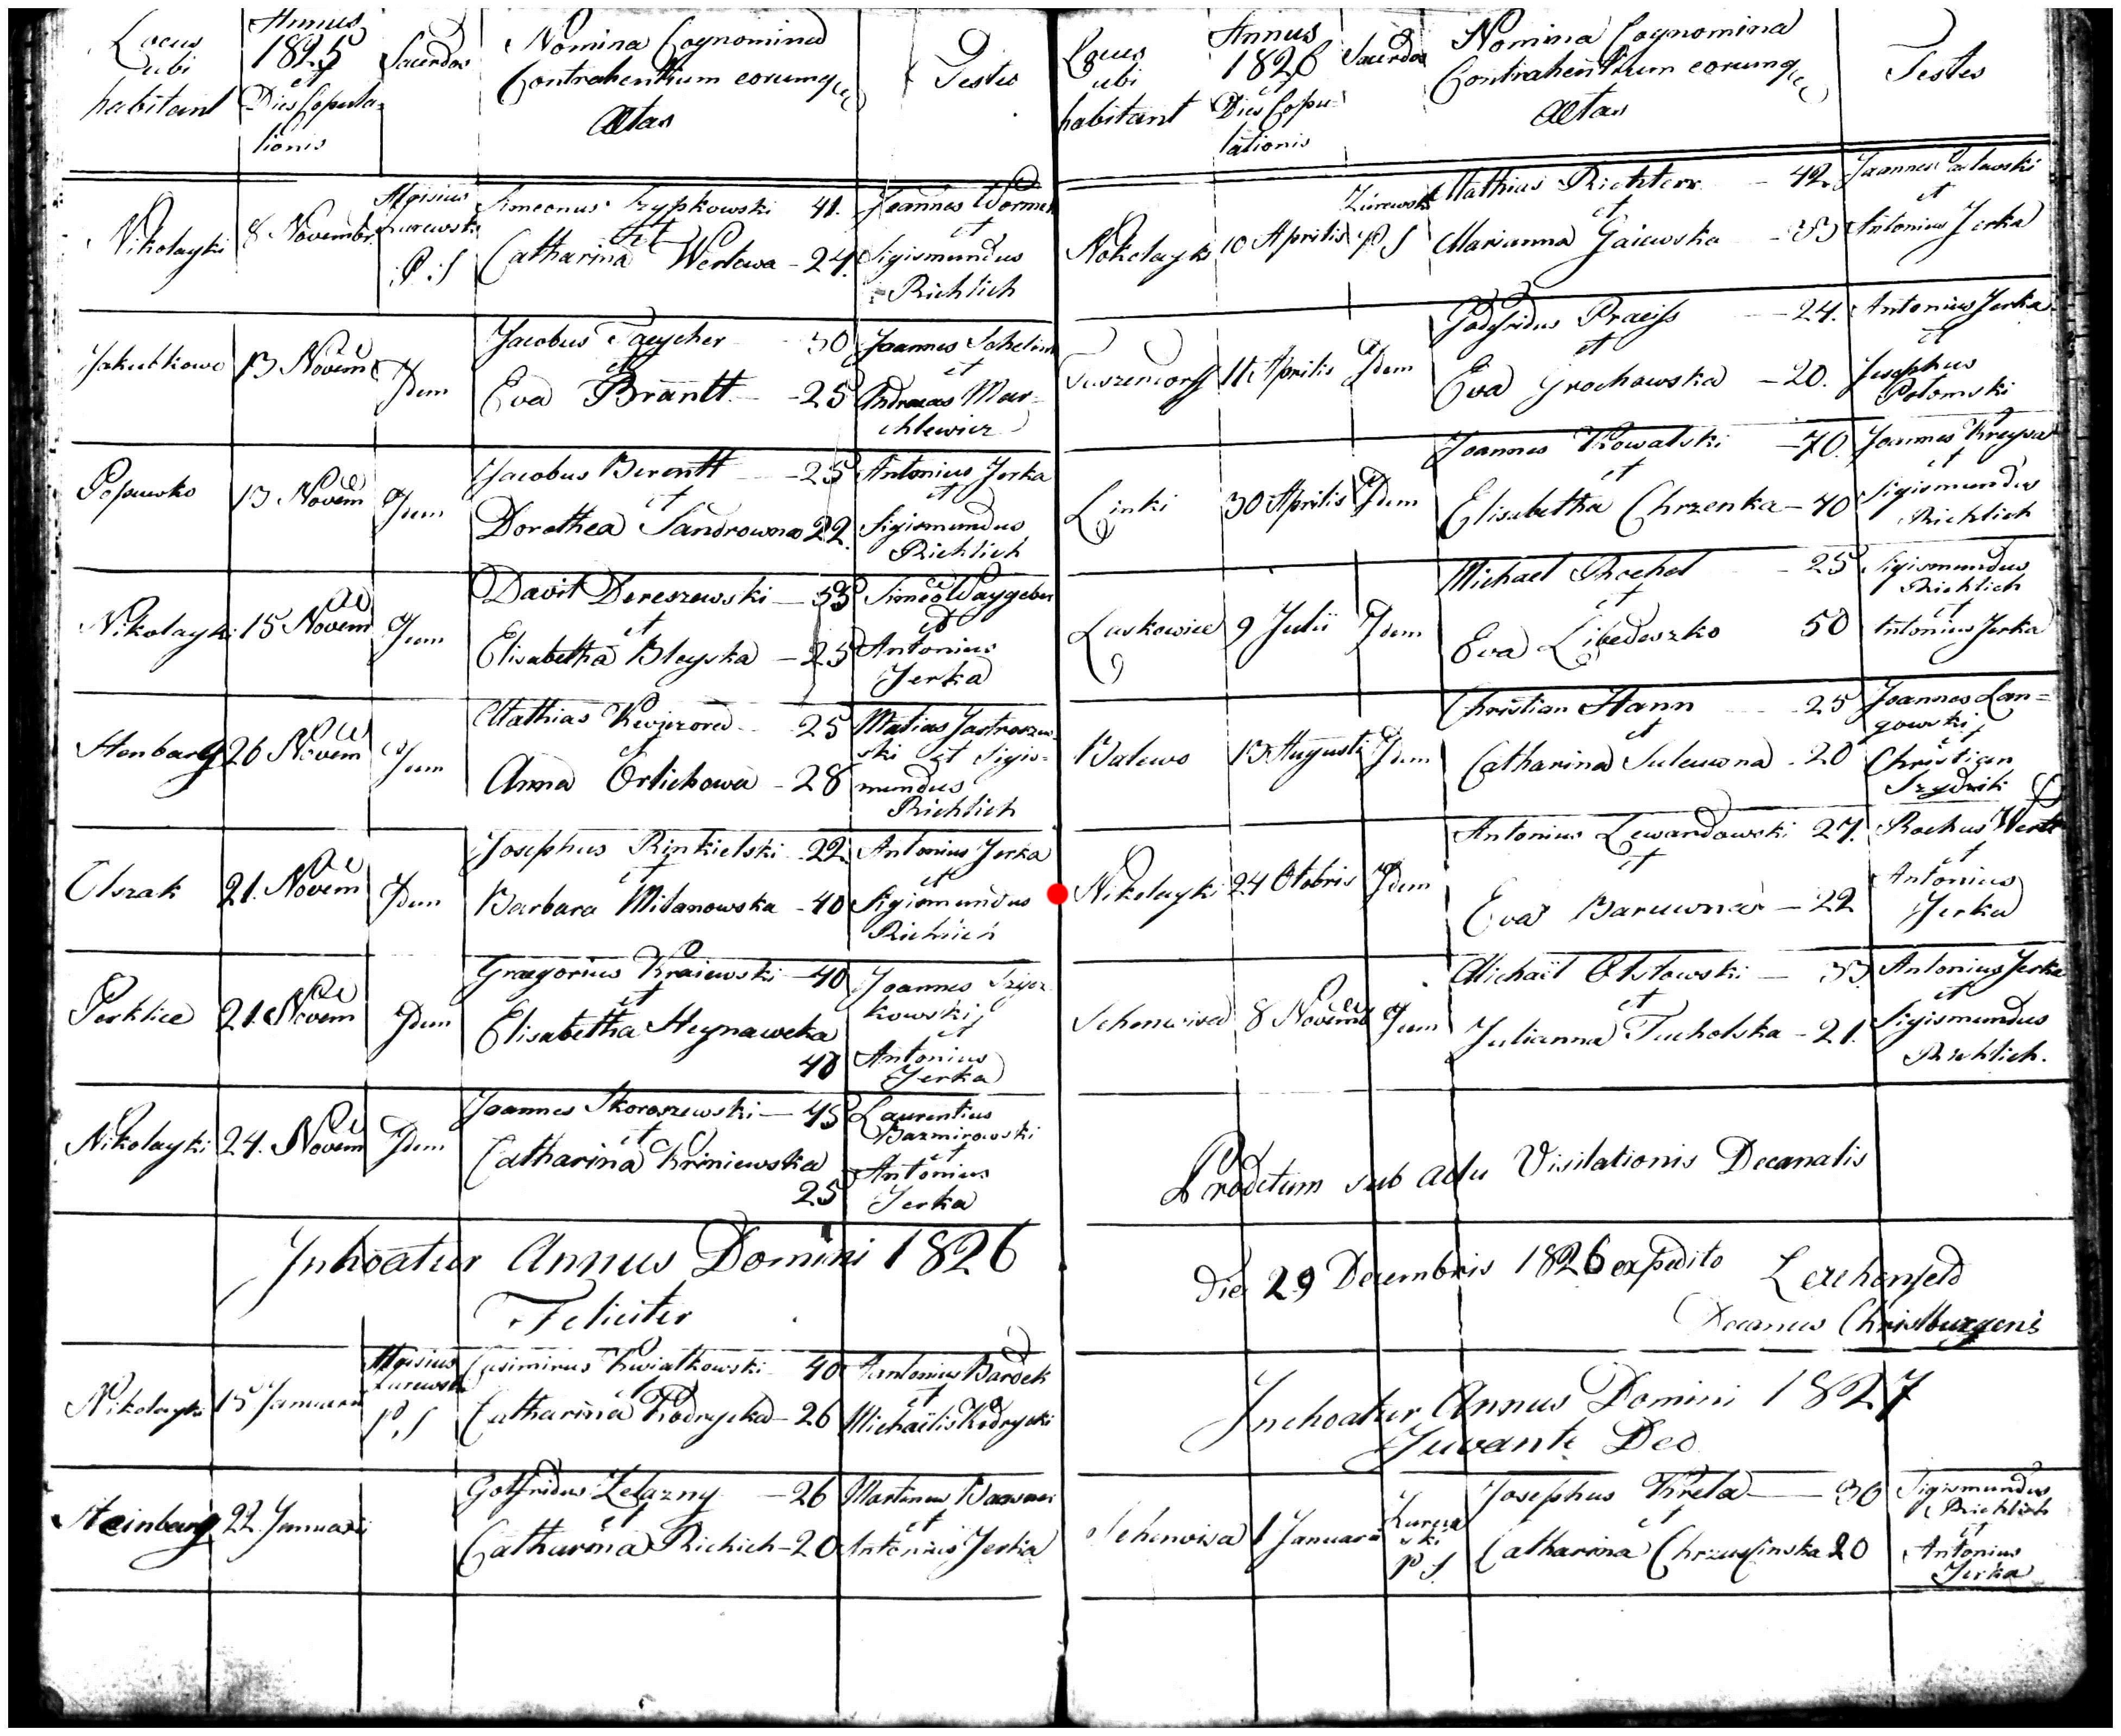 Locus
ubi
habitant
Annus
1825
et
Dies Copula-
tionis
Sacerdos
Nomina Cognomina
Contrahentium eorumque
Ætas
Testes
Nikolayki
8 Novembr
Aloisius
Zurewski
P. S
Simeonus Szypkowski 41.
et
Catharina Werlewa - 24.
Joannes
et
Sigismundus
Richlich
Jakubkowo
13 Novem
Idem
Jacobus Taeycher 30
et
Eva Brantt - 25
Joannes
et
Andreas Mar-
chlewicz
13 Novem
Idem
Jacobus Berentt - 25
et
Dorothea Sandrowna 22.
Antonius Jerka
et
Sigismundus
Richlich
Nikolayki
15 Novem
Idem
Davit Dereszewski - 33
et
Elisabetha Bleyska - 25
et
Antonius
Jerka
Stenbarg
26 Novem
Idem
Mathias
25
et
Anna Orlichowa - 28
Matias Jastrzem-
ski et Sigis-
mundus
Richlich
Olszak
21. Novem
Idem
Josephus Rinkielski - 22
et
Barbara Milanowska - 40
Antonius Jerka
et
Sigismundus
Richlich
Perklice
21. Novem
Idem
Graegorius Kraiewski - 40
et
Elisabetha Heynaweka
40
Joannes Szyz
kowski
et
Antonius
Jerka
Nikolayki
24. Novem
Idem
Joannes Skoroszewski - 45
et
Catharina Kriniewska
25
Laurentius
Bazmirowski
et
Antonius
Jerka
Inhoatur Annus Domini 1826
Feliciter
Nikolayki
15 Januarii
Aloisius
Zurewski
P. S
Casimirus Kwiatkowski 40
et
Catharina Kodrycka - 26
Antonius Bardek
et
Michaelis Kodrycki
Steinbarg
22. Januarii
Gotfridus Zelazny - 26
et
Catharina Richich - 20
Martinus
et
Antonius Jerka
Locus
ubi
habitant
Annus
1826
et
Dies Copu-
lationis
Sacerdos
Nomina Cognomina
Contrahentium eorumque
Ætas
Testes
Nokolayki
10 Aprilis
Zurewski
P S
Mathius Richterr - 42.
et
Marianna Gaiewska - 33
Joannes
et
Antonius Jerka
11 Aprilis
Idem
Godfridus Praeiss - 24.
et
Eva Grochowska - 20.
Antonius Jerka
et
Josephus
Potomski
Linki
30 Aprilis
Idem
Joannes Kowalski - 70.
et
Elisabetha Chrzenka - 40
Joannes Kreysa
et
Sigismundus
Richlich
Laskowice
9 Julii
Idem
Michael Prochel - 25
et
Eva Libedeszko 50
Sigismundus
Richlich
et
Antonius Jerka
Balewo
13 Augusti
Idem
Christian Hann - 25
et
Catharina Sulewsna - 20
Joannes Lan-
gowski
et
Christian
Szydzik
Nikolayki
24 Otobris
Idem
Antonius Lewandowski 27.
et
Eva Baruwna - 22
Rochus
et
Antonius
Jerka
Schenwisa
8 Novemb
Idem
Michael Olstowski - 33.
et
Julianna Tucholska - 21.
Antonius Jerka
et
Sigismundus
Richlich.
Proditum sub actu Visitationis Decanalis
Die 29 Decembris 1826 expedito Lerchenfeld
Decanus Christburgens
Inchoatur Annus Domini 1827
Juvante Deo
Schenwisa
1 Januarii
Zurew
ski
P S.
Josephus Krela - 30
et
Catharina Chrzuszinska 20
Sigismundus
Richlich
et
Antonius
Jerka